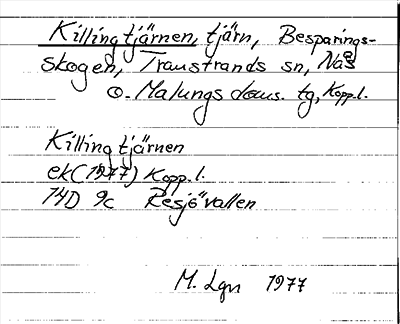 Killingtjärnen, tjärn, Besparings-
skogen, Transtrands sn, Nås
o. Malungs doms. tg, Kopp.l.
Killingtjärnen
ek (1977) Kopp.l.
14D 9c Resjövallen
M. Lgn 1977